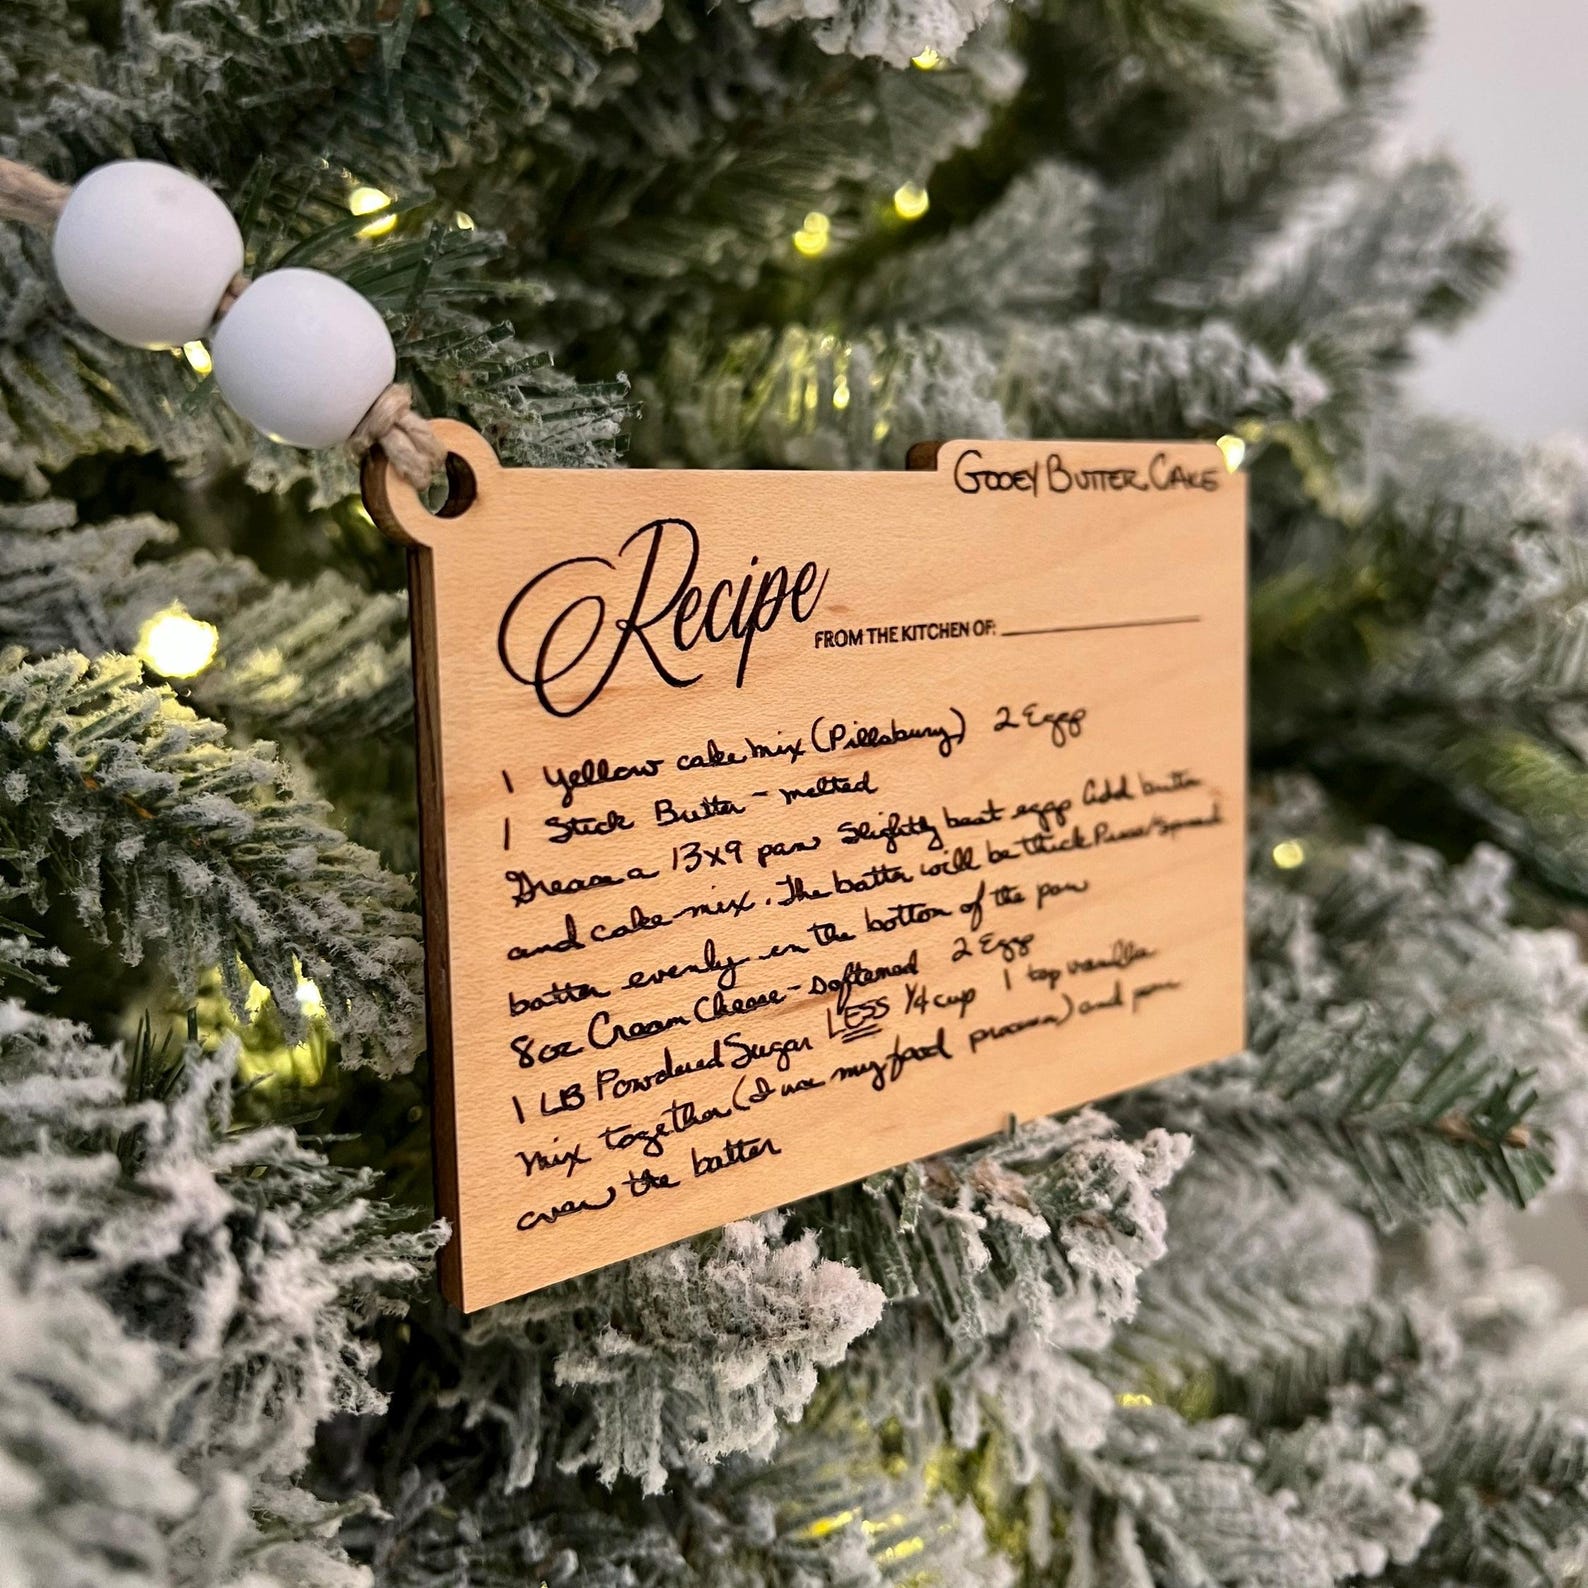 GOOEY BUTTER CAKE
Recipe
FROM THE KITCHEN OF:
1 Yellow cake mix (Pillsbury) 2 Eggs
1 Stick Butter - melted
Grease a 13x9 pan Slightly beat eggs Add butter
and cake mix. The batter will be thick Press/Spread
batter evenly in the bottom of the pan
8oz Cream Cheese - softened 2 Eggs
1 LB Powdered Sugar LESS 1/4 cup 1 tsp vanilla
Mix together (I use my food processor) and pour
over the batter